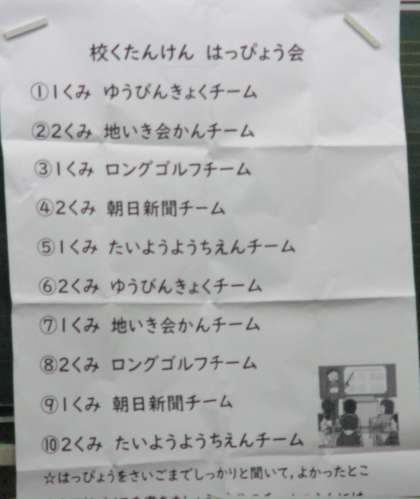 校くたんけん はっぴょう会
①1くみ ゆうびんきょくチーム
②2くみ 地いき会かんチーム
③1くみ ロングゴルフチーム
④2くみ 朝日新聞チーム
⑤1くみ たいようようちえんチーム
⑥2くみ ゆうびんきょくチーム
⑦1くみ 地いき会かんチーム
⑧2くみ ロングゴルフチーム
⑨1くみ 朝日新聞チーム
⑩2くみ たいようようちえんチーム
☆はっぴょうをさいごまでしっかりと聞いて，よかったとこ